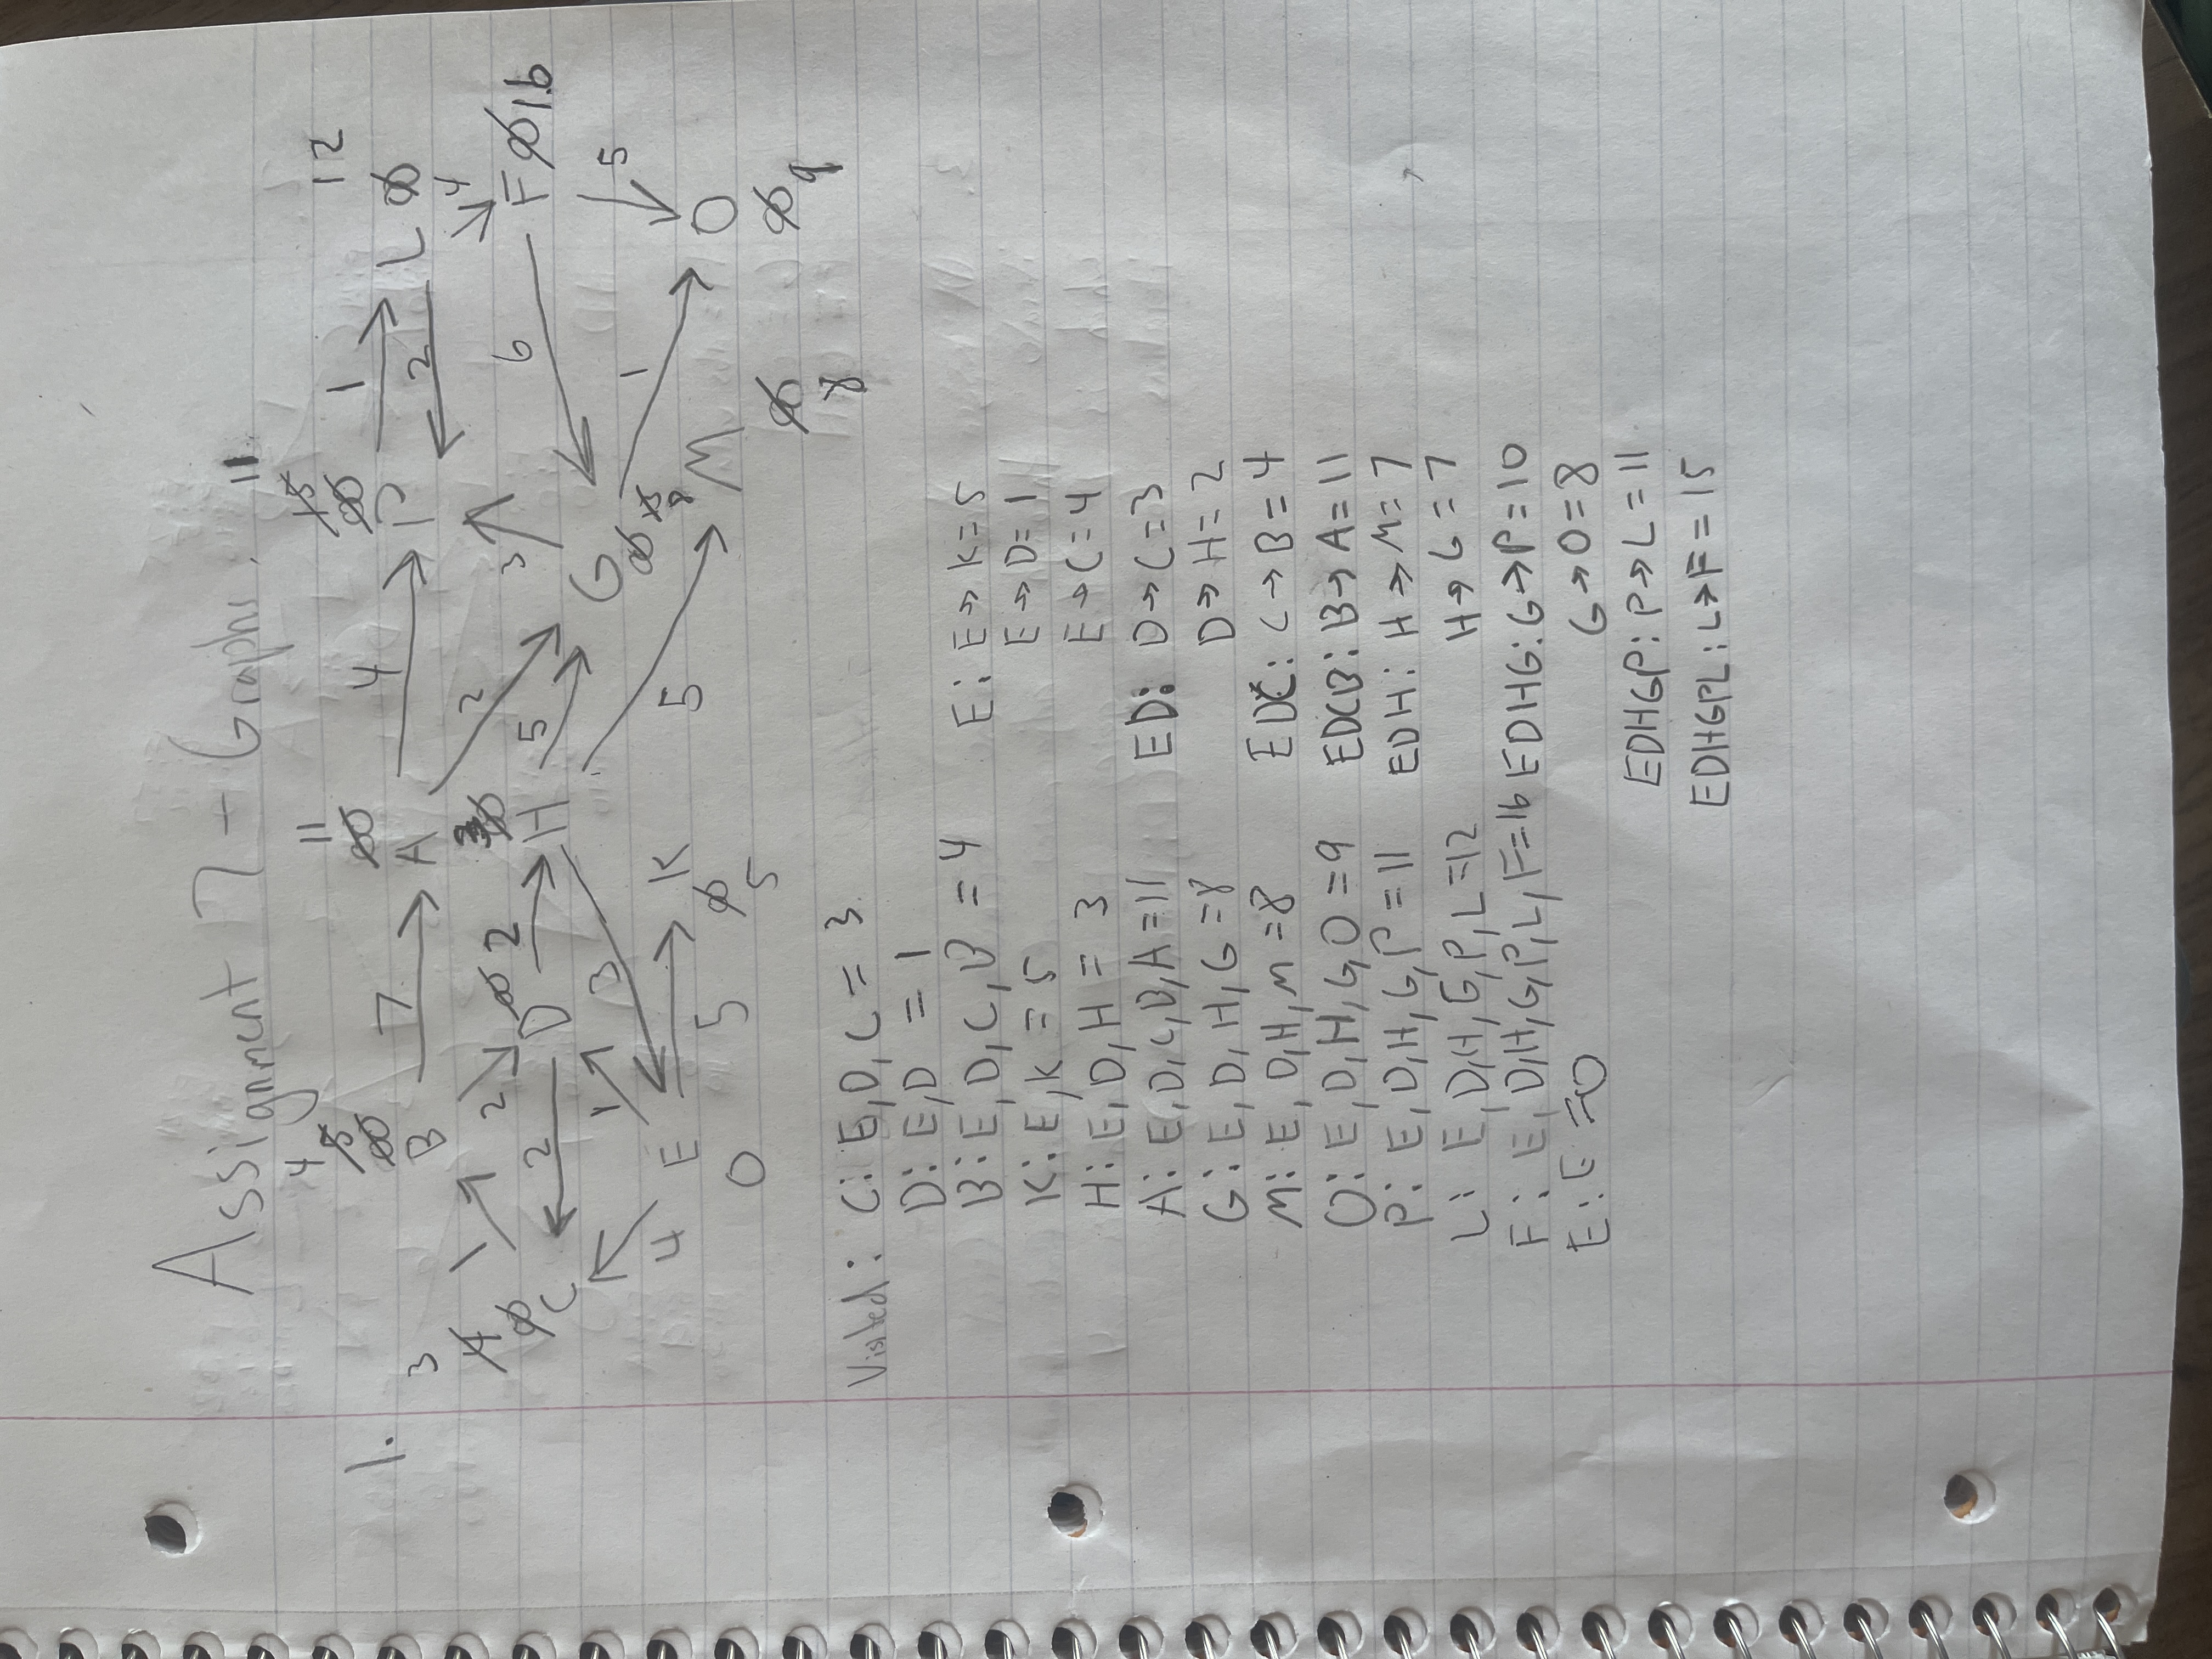 Assignment 7 - Graphs.
11
4
5
∞
11
∞
15
∞
12
1.
B
7
A
4
P
1
2
L ∞
3
4
∞
C
1
2
2
D ∞
2
3
∞
H
5
2
3
G
∞ 15
8
6
4
F ∞ 16
5
4
1
3
E
0
5
K
∞
5
5
M
∞
8
1
O
∞ 9
Visited: C: E, D, C = 3
D: E, D = 1
B: E, D, C, B = 4
K: E, K = 5
H: E, D, H = 3
A: E, D, C, B, A = 11
G: E, D, H, G = 8
M: E, D, H, M = 8
O: E, D, H, G, O = 9
P: E, D, H, G, P = 11
L: E, D, H, G, P, L = 12
F: E, D, H, G, P, L, F = 16
E: E = 0
E: E → K = 5
E → D = 1
E → C = 4
ED: D → C = 3
D → H = 2
EDC: C → B = 4
EDCB: B → A = 11
EDH: H → M = 7
H → G = 7
EDHG: G → P = 10
G → O = 8
EDHGP: P → L = 11
EDHGPL: L → F = 15